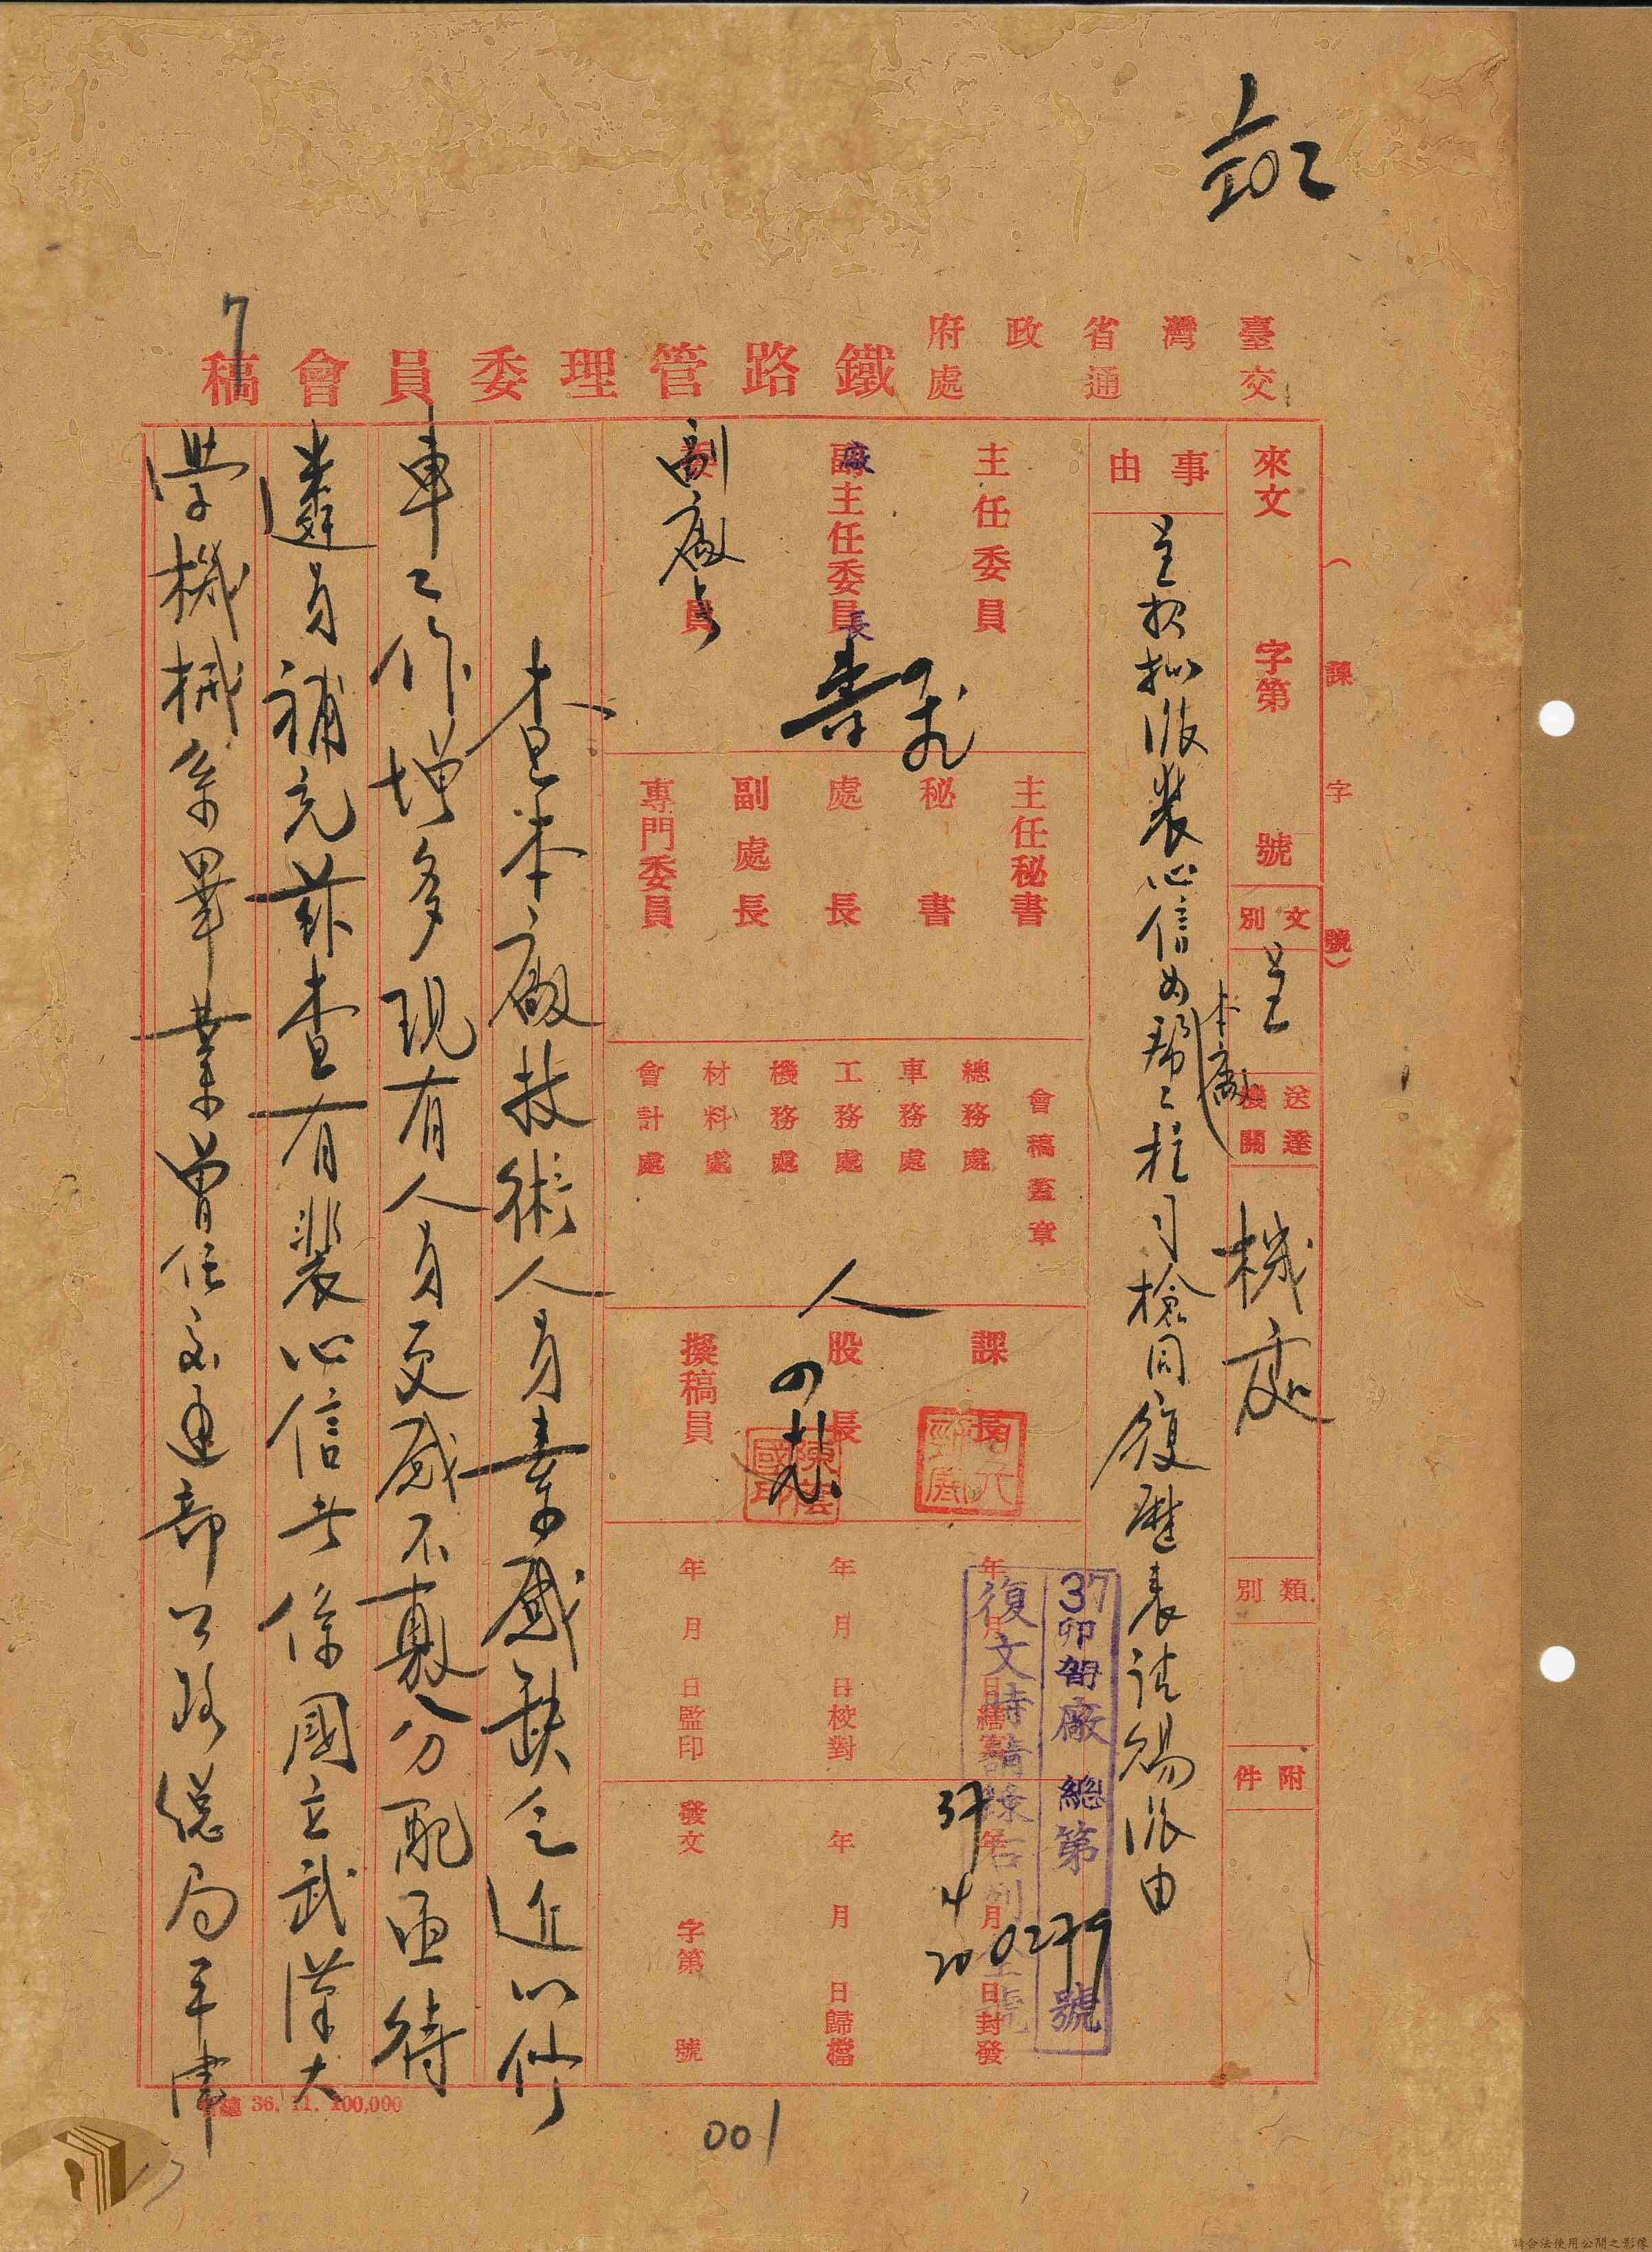 臺灣省政府
交通處
鐵路管理委員會稿
(課字號)
來文 字第 號
文別 呈
送達機關 機處
類別
附件
事由
呈報擬派裴心信為本廠幫工程司檢同履歷表請賜派由
主任委員
副主任委員
廠長
委員
副廠長
主任秘書
秘書
處長
副處長
專門委員
會稿蓋章
總務處
車務處
工務處
機務處
材料處
會計處
人
課長
股長
擬稿員
陳雲國印
年月日繕寫
年月日校對
年月日監印
37年4月20日封發
年月日歸檔
發文 字第 號
37卯 廠總第00279號
復文時請錄右列全號
查本廠技術人員素感缺乏近以修
車工作增多現有人員更感不敷分配亟待
遴員補充茲查有裴心信者係國立武漢大
學機械系畢業曾任交通部公路總局平津
總 36. 11. 100,000
001
請合法使用公開之影像